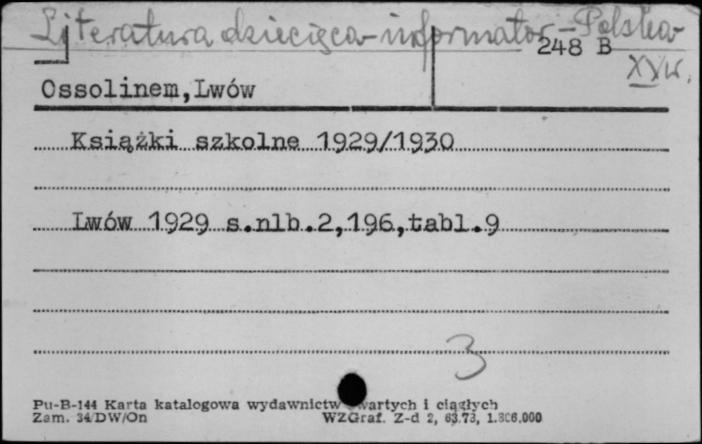 Literatura dziecięca - informator - Polska
248 B
XX w.
Ossolinem, Lwów
Książki szkolne 1929/1930
Lwów 1929 s.nlb.2,196,tabl.9
3
Pu-B-144 Karta katalogowa wydawnictw zwartych i ciągłych
Zam. 34/DW/On WZGraf. Z-d 2, 63.73, 1.806.000